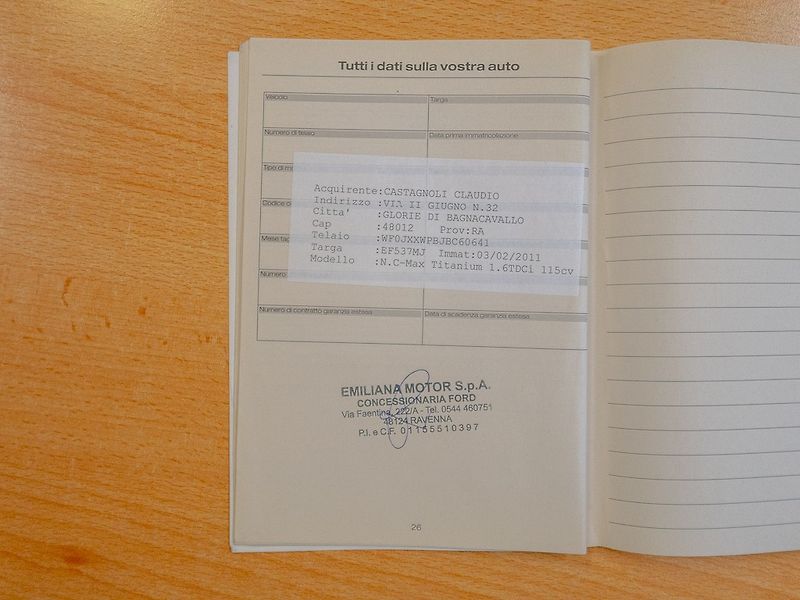 Tutti i dati sulla vostra auto
Veicolo
Targa
Numero di telaio
Data prima immatricolazione
Tipo di
Codice
Mese
Numero
Acquirente:CASTAGNOLI CLAUDIO
Indirizzo :VIA II GIUGNO N.32
Citta' :GLORIE DI BAGNACAVALLO
Cap :48012 Prov:RA
Telaio :WF0JXXWPBJBC60641
Targa :EF537MJ Immat:03/02/2011
Modello :N.C-Max Titanium 1.6TDCi 115cv
Numero di contratto garanzia estesa
Data di scadenza garanzia estesa
EMILIANA MOTOR S.p.A.
CONCESSIONARIA FORD
Via Faentina, 222/A - Tel. 0544 460751
48124 RAVENNA
P.I. e C.F. 01155510397
26